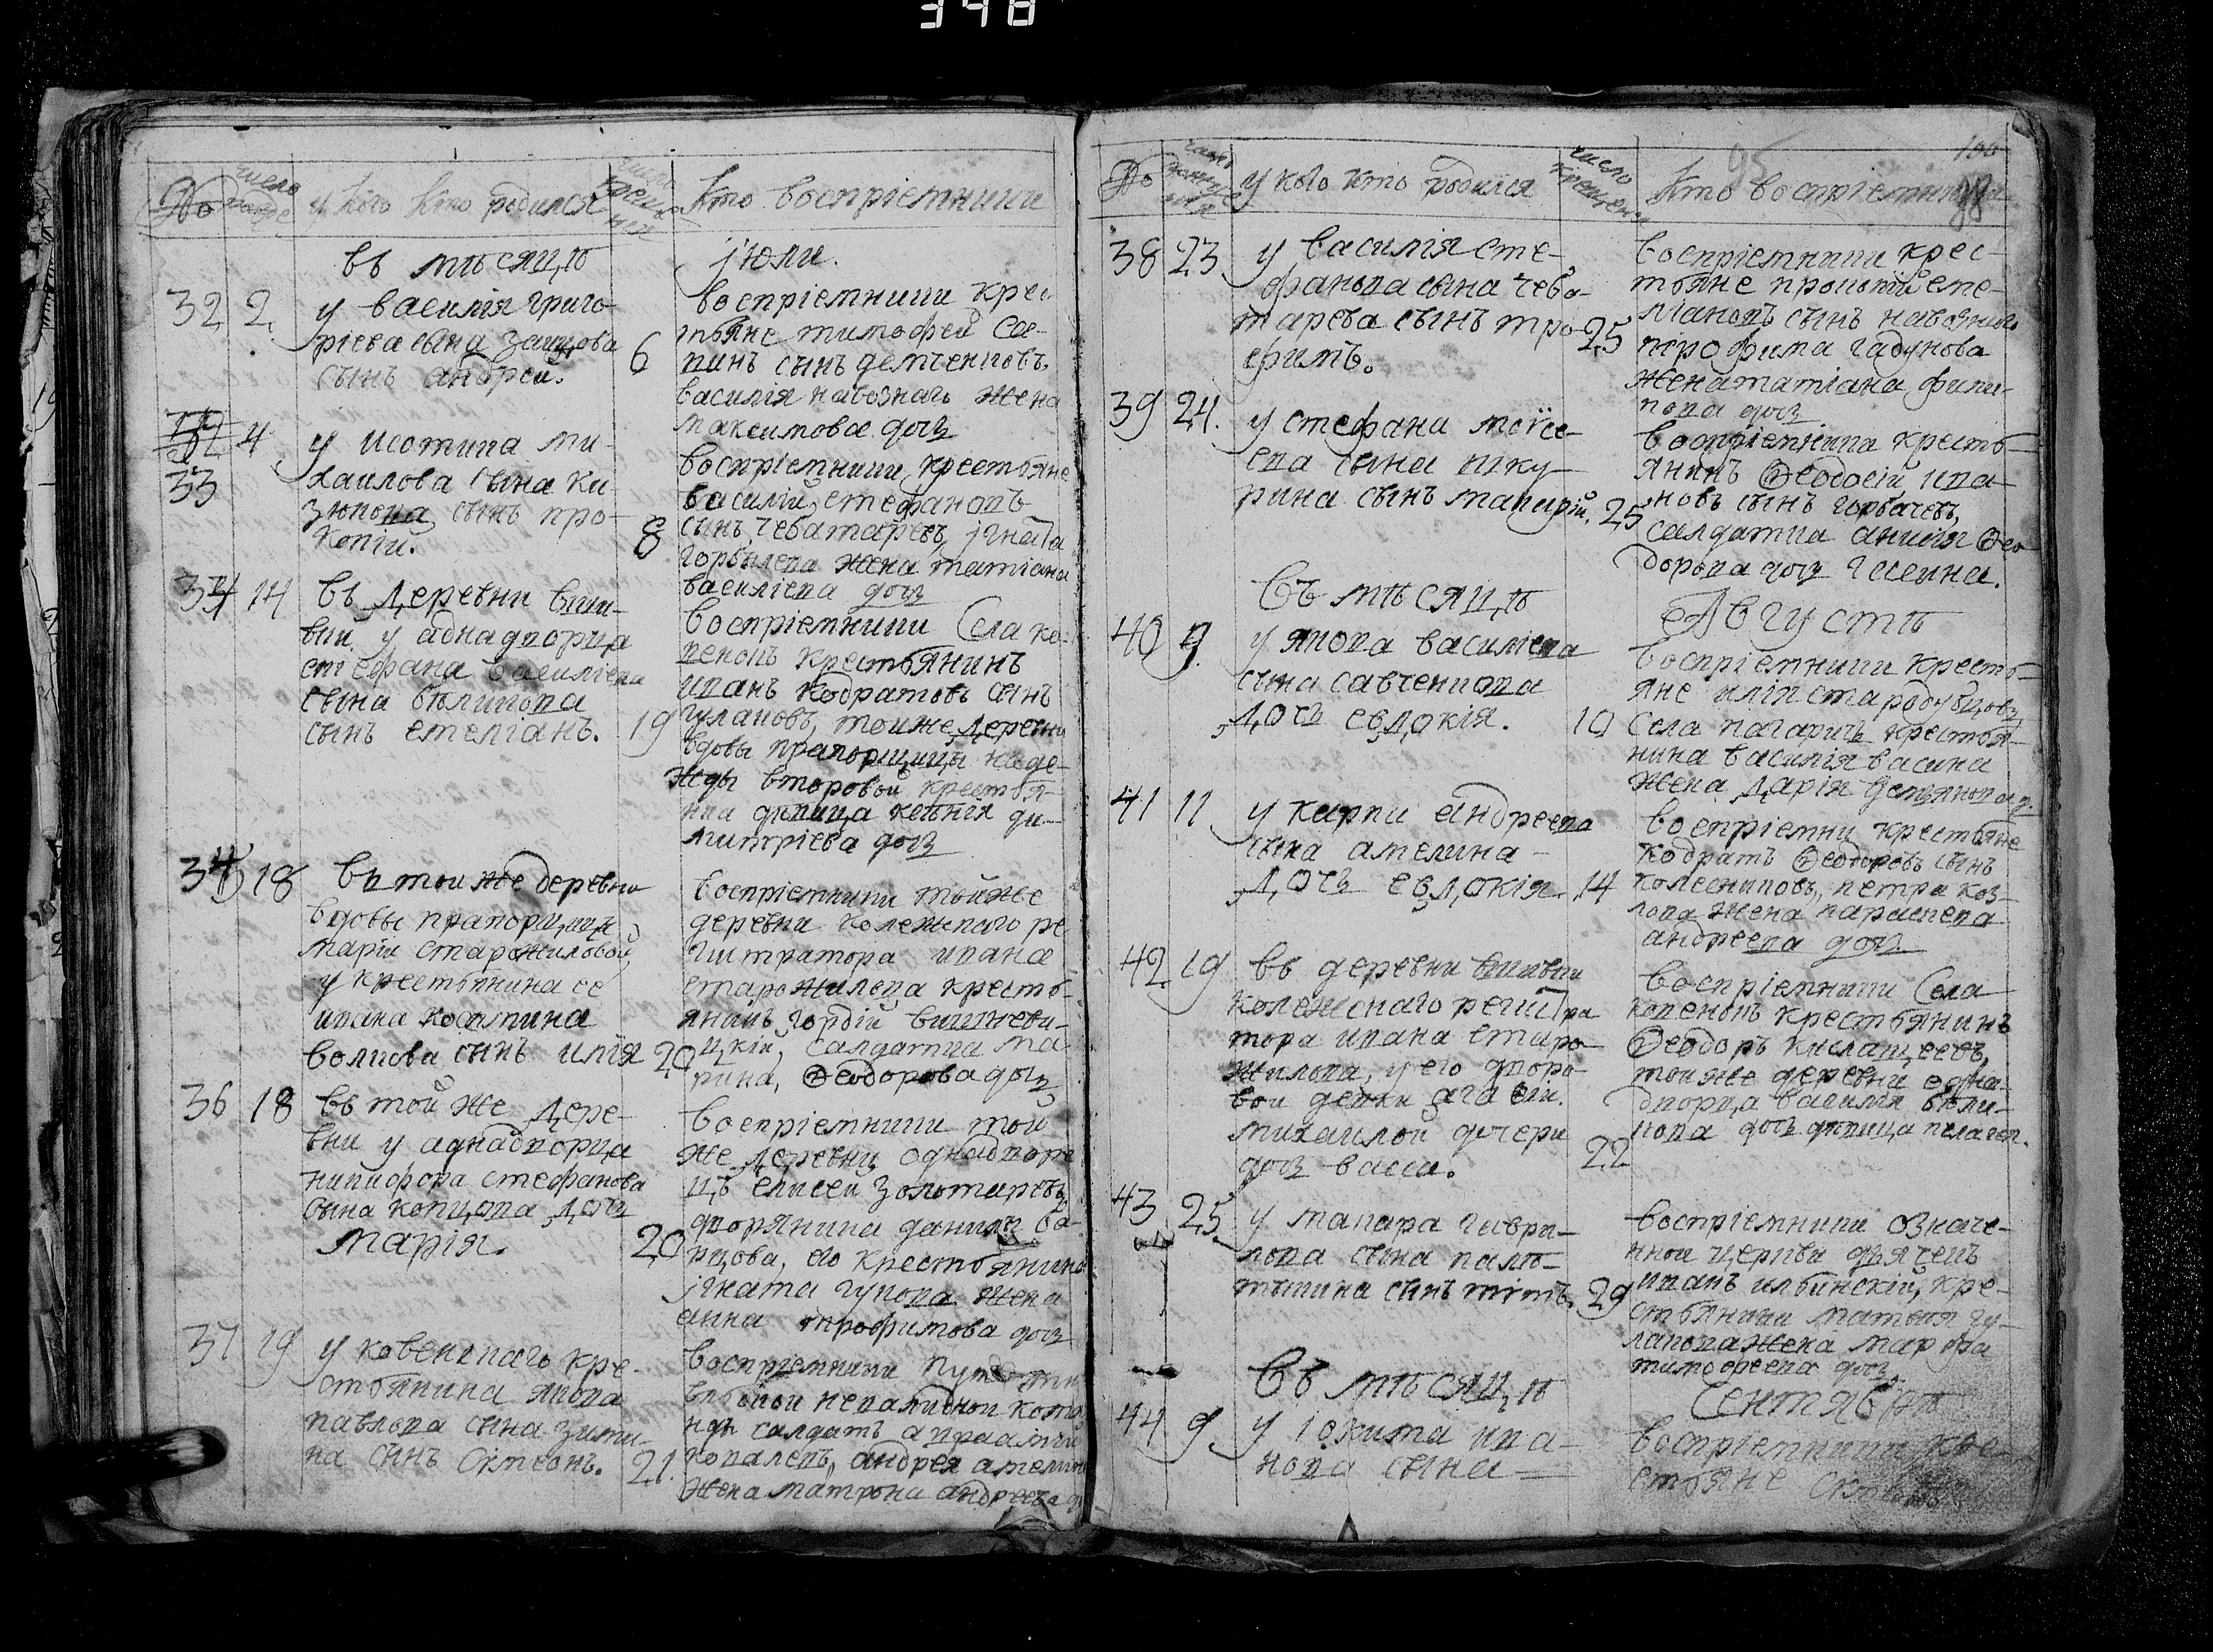 348
№
число
у кого кто родился
число
креще
нія
Кто воспріемники
въ мѣсяцѣ
іюли.
32 2
у василія григо-
ріева сына зайцова
сынъ андрей.
6
воспріемники крес-
тьяне тимофей са-
винъ сынъ демченковъ,
василія навознаго жена
максимова дочь
4
33
у изотипа ми-
хаилова сына ки-
зюпова, сынъ про-
копій.
8
воспріемники крестьяне
василій стефановъ
сынъ чеботаревъ, ігната
горбылева жена татіана
василіева дочь
34 14
въ деревни
у аднадворца
стефана василіева
сына бѣликова
сынъ емеліанъ.
19
воспріемники села ко-
венокъ крестьянинъ
иванъ кодратовъ сынъ
гулаковъ, тойже деревни
вдовы прапорщицы наде-
жды второвой крестья-
нка дѣвица ксѣнія ди-
митріева дочь
35 18
въ той же деревни
вдовы прапорщицы
маріи старожиловой
у крестьянина ее
ивана козмина
волкова сынъ илія
20
воспріемники тойже
деревни колежскаго ре-
гистратора ивана
старожилова кресть-
янинъ гордій вишневи-
цкій, салдатка ма-
рина, Ѳеодорова дочь
36 18
въ той же дере-
вни у аднадворца
никифора стефанова
сына копцова дочь
марія.
20
воспріемники той
же деревни однадворе-
цъ елисей золотаревъ
дворянина данилы бо-
рцова, его крестьянина
ігната гукова жена
анна трофимова дочь
37 19
у ковенскаго кре-
стьянина якова
павлова сына зими-
на сынъ Симеонъ.
21
воспріемники
инвалидной кома-
нды салдатъ авраамій
ковалевъ, андрея амелина
жена матрона андреева д.
№
число
рожде
нія
у кого кто родился
число
крещенія
95
Кто воспріемники
38 23
у василія сте-
фанова сына чебо-
тарева сынъ тро-
фимъ.
25
воспріемники крес-
тьяне прокопій еме-
ліановъ сынъ навозного
трофима гадунова
жена татіана фили-
пова дочь
39 24.
у стефана моѵсе-
ева сына шку-
рина сынъ макарій.
25
воспріемника кресть-
янинъ Ѳеодосій ива-
новъ сынъ горбачевъ,
салдатка анисія Ѳео-
дорова дочь гасина.
Въ мѣсяцѣ
Августѣ
40 9.
у якова василіева
сына савченкова
дочь евдокія.
10
воспріемники кресть-
яне илія стародубцовъ
села пагаричъ крестья-
нина василія васина
жена дарія устянова д.
41 11
у карпа андреева
сына амелина
дочь евдокія.
14
воспріемни крестьяне
кодратъ Ѳеодоровъ сынъ
колесниковъ, петра коз-
лова жена параскева
андреева дочь
42 19
въ деревни
колежскаго регистра
тора ивана старо-
жилова, у его дворо-
вой девки агаѳіи
михаиловой дочери
дочь васса.
22
воспріемники села
ковенокъ крестьянинъ
Ѳеодоръ кислащеевъ,
тойже деревни одно-
дворца василія бѣли-
кова дочь дѣвица пелагея.
43 25.
у макара гаври-
лова сына палю-
тькина сынъ титъ.
29
воспріемники означе-
нной церкви дьячекъ
иванъ илбинскій, кре-
стьянина матвея гу-
лакова жена марфа
тимофеева дочь.
Въ мѣсяцѣ
Сентябрѣ
44 9
у іокима ива-
нова сына
воспріемники кре-
стьяне